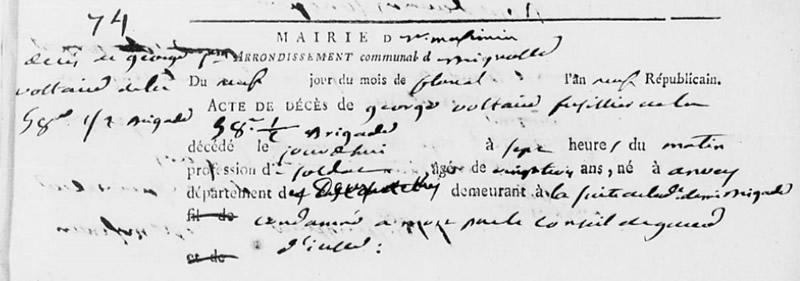 74
MAIRIE D St. Maximin
décès de george ARRONDISSEMENT communal d Brignolle
voltaire de la Du neuf jour du mois de floreal l'an neuf Républicain.
58e 1/2 Brigade ACTE DE DÉCÈS de george voltaire fusillier de la
58e 1/2 Brigade
décédé le jourdhui à sept heures du matin
profession d soldat âgé de ans, né à
département de demeurant à la suite de la de. demi Brigade
fil de condamné a mort par le Conseil de guerre
et de